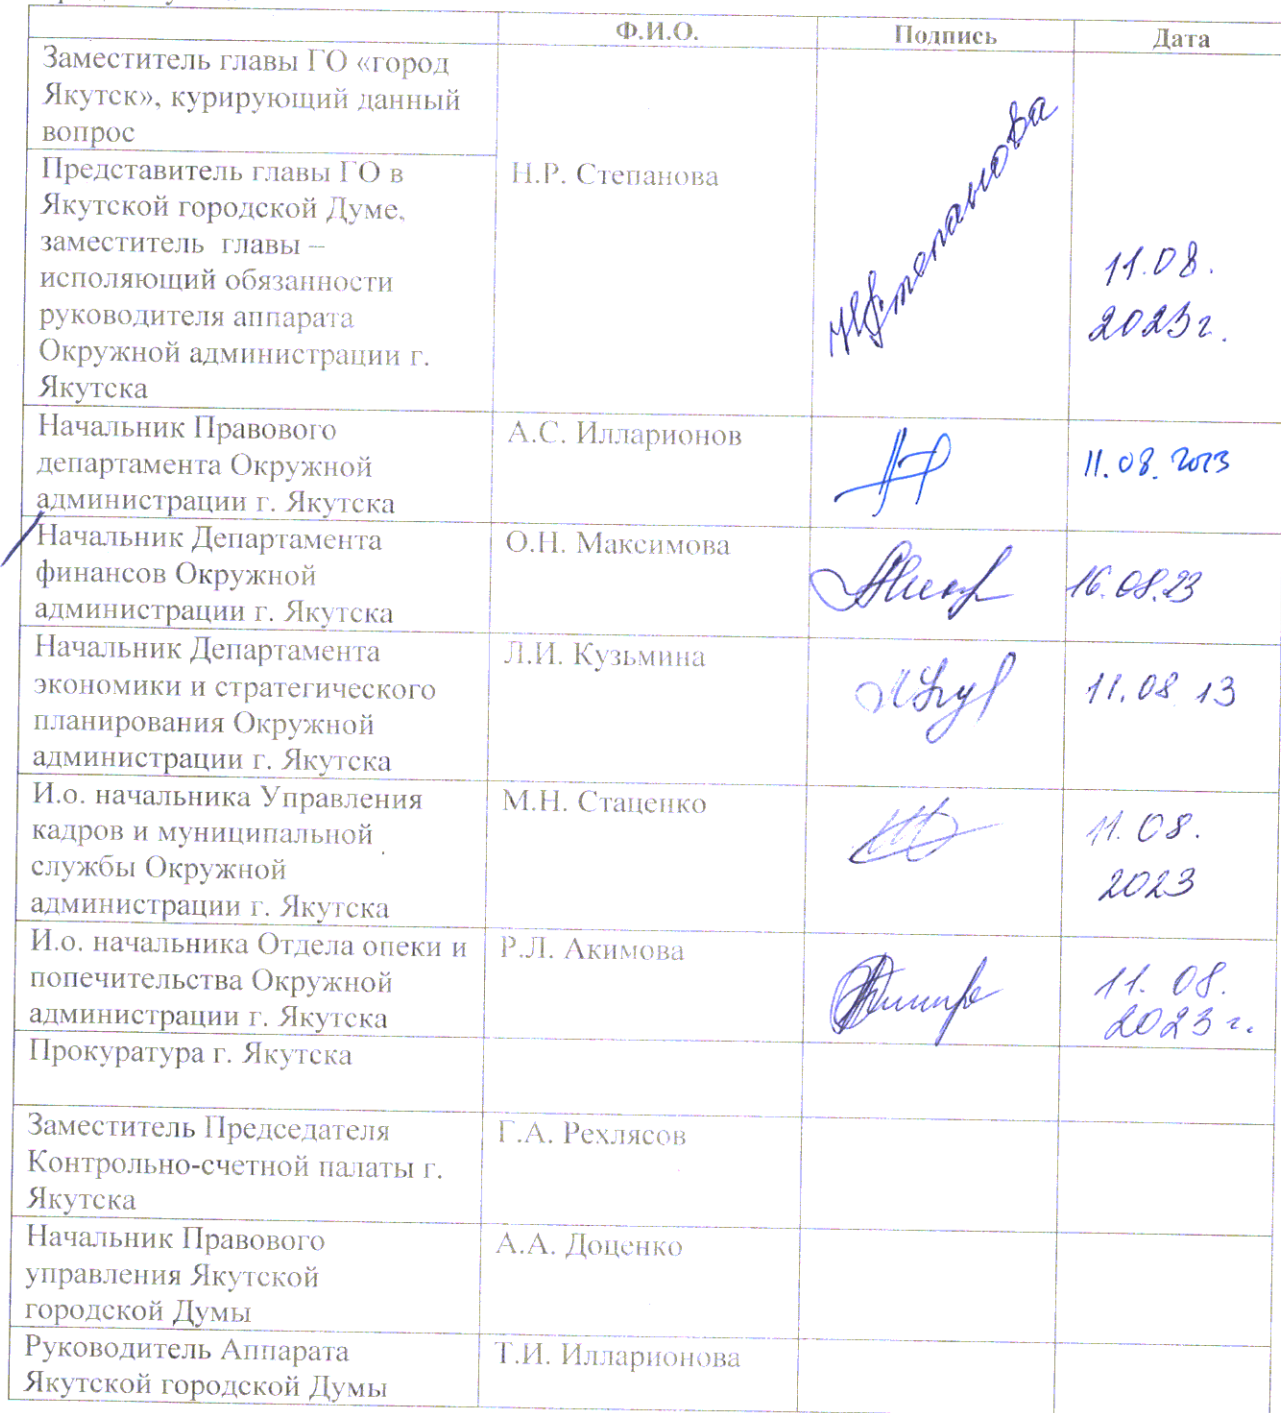 Ф.И.О. Подпись Дата
Заместитель главы ГО «город
Якутск», курирующий данный
вопрос
Представитель главы ГО в
Якутской городской Думе,
заместитель главы –
исполяющий обязанности
руководителя аппарата
Окружной администрации г.
Якутска
Н.Р. Степанова
НРСтепанова
11.08.
2023г.
Начальник Правового
департамента Окружной
администрации г. Якутска
А.С. Илларионов
11.08.2023
Начальник Департамента
финансов Окружной
администрации г. Якутска
О.Н. Максимова
16.08.23
Начальник Департамента
экономики и стратегического
планирования Окружной
администрации г. Якутска
Л.И. Кузьмина
11.08 13
И.о. начальника Управления
кадров и муниципальной
службы Окружной
администрации г. Якутска
М.Н. Стаценко
11.08.
2023
И.о. начальника Отдела опеки и
попечительства Окружной
администрации г. Якутска
Р.Л. Акимова
11.08.
2023г.
Прокуратура г. Якутска
Заместитель Председателя
Контрольно-счетной палаты г.
Якутска
Г.А. Рехлясов
Начальник Правового
управления Якутской
городской Думы
А.А. Доценко
Руководитель Аппарата
Якутской городской Думы
Т.И. Илларионова